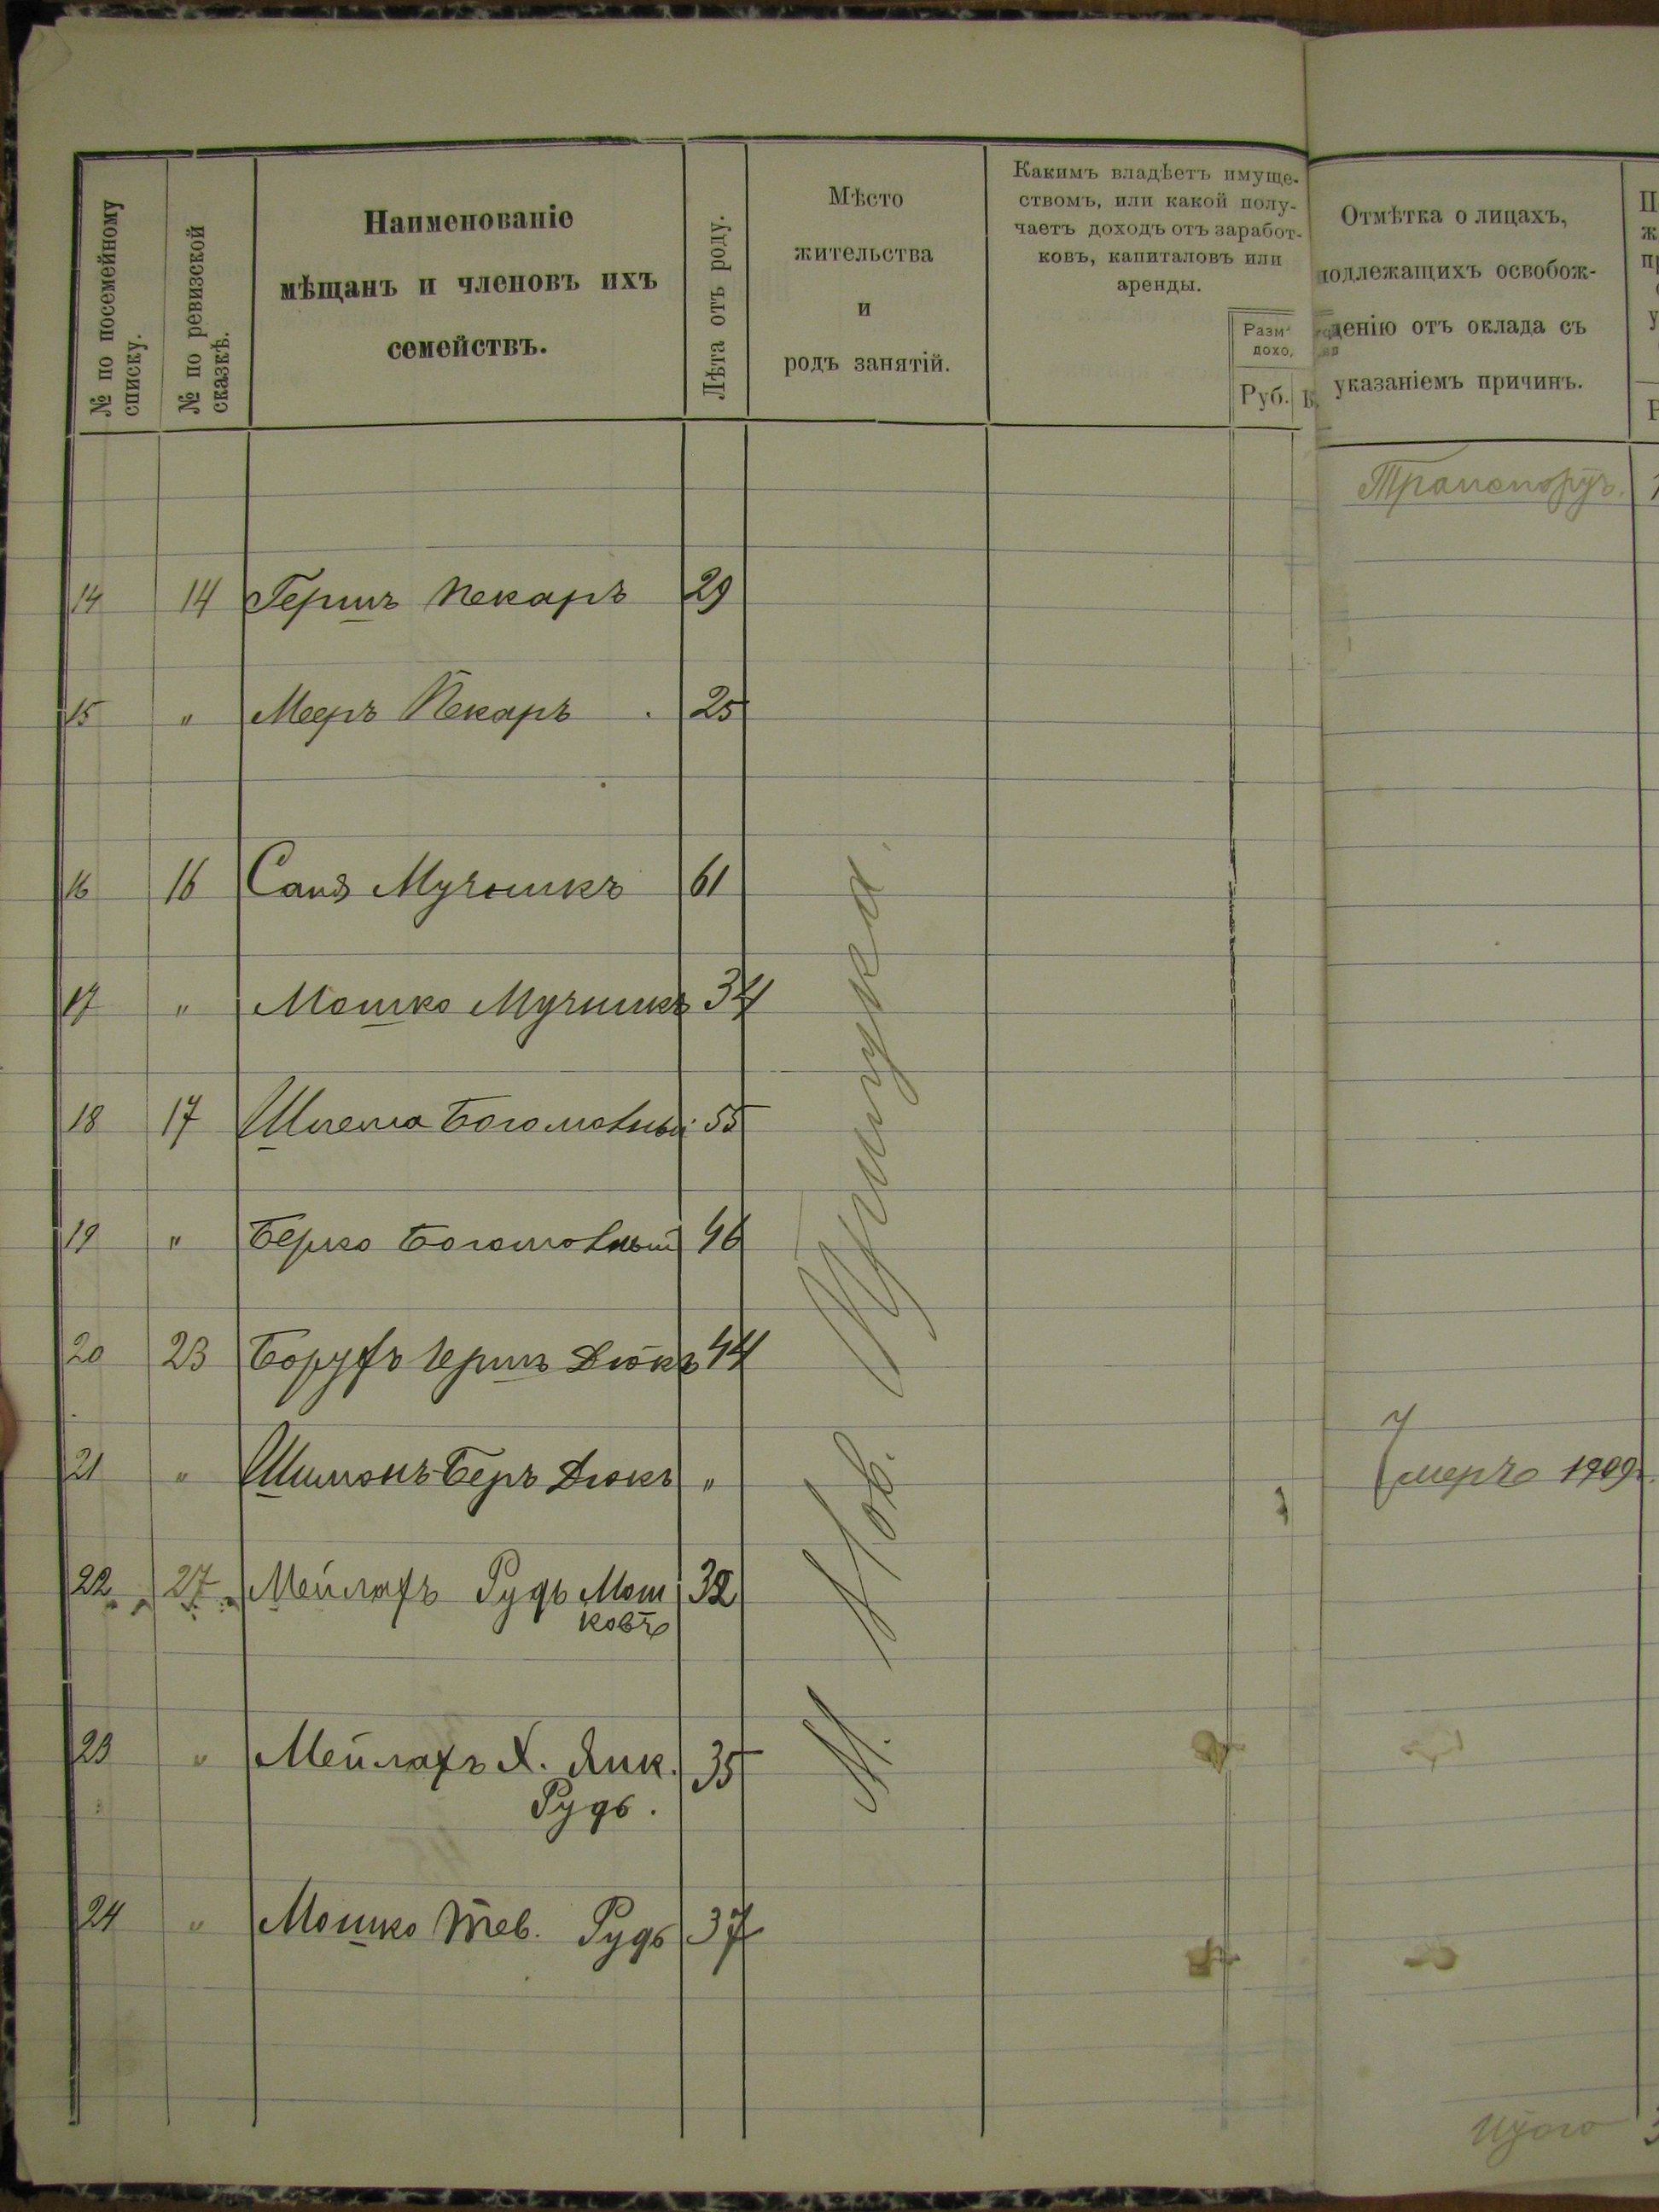 № по посемейному списку.
№ по ревизской сказкѣ.
Наименованіе
мѣщанъ и членовъ ихъ
семействъ.
Лѣта отъ роду.
Мѣсто
жительства
и
родъ занятій.
Какимъ владѣетъ имуще-
ствомъ, или какой полу-
чаетъ доходъ отъ заработ-
ковъ, капиталовъ или
аренды.
Руб.
Отмѣтка о лицахъ,
подлежащихъ освобож-
денію отъ оклада съ
указаніемъ причинъ.
Транспортъ.
14 14 Гершъ Пекаръ 29
15 " Мееръ Пекаръ 25
16 16 61
17 " Мошко Мучникъ 34
18 17 Шлема Богомольный 55
19 " Берко Богомольный 46
20 23 Борухъ Гершъ Дюкъ 44
21 " Шимонъ-Беръ Дюкъ "
Умеръ 1909г.
22 27 Мейлахъ Рудь Мош
ковъ 32
23 " Мейлахъ Х. Янк. 35
Рудь.
24 " Мошко Тев. Рудь 37
М. Нов. Прилука.
Итого